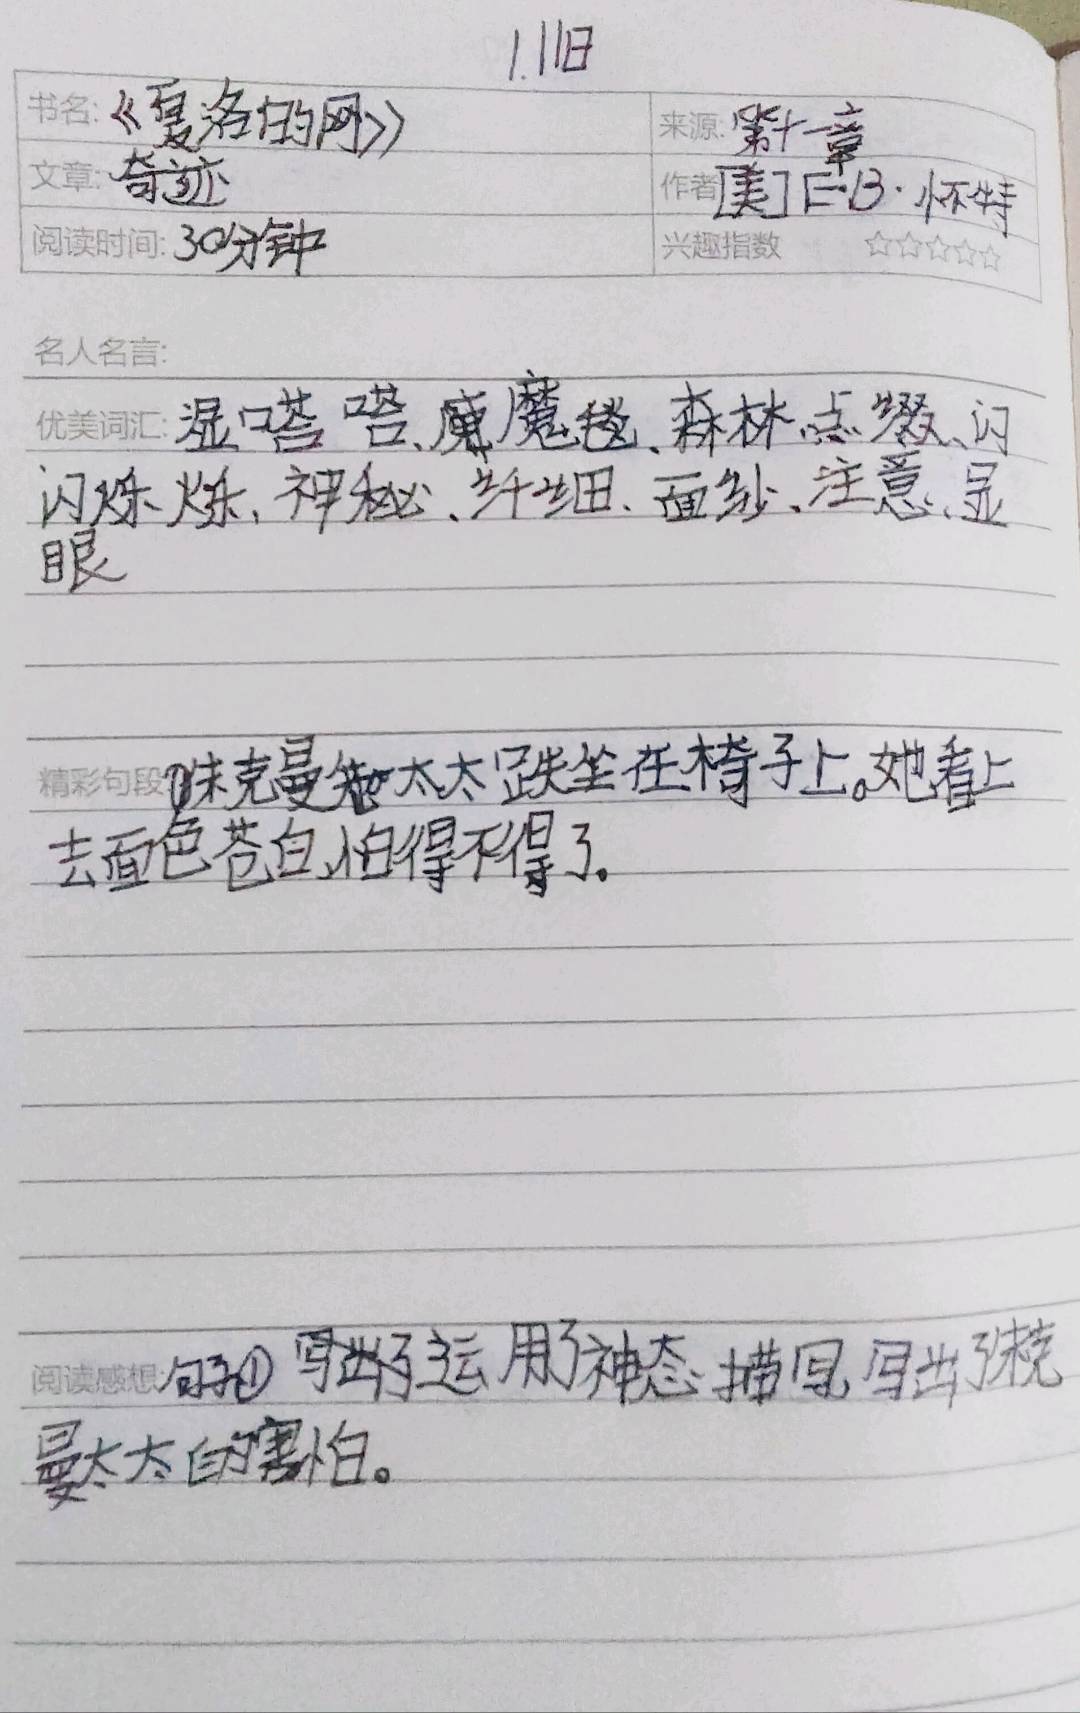 1.11日
书名:《夏洛的网》 来源:第十一章
文章:奇迹 作者[美]E·B·怀特
阅读时间:30分钟 兴趣指数 ☆☆☆☆☆
名人名言:
优美词汇:湿嗒嗒、魔毯、森林、点缀、闪
闪烁烁、神秘、纤细、面纱、注意、显
眼
精彩句段①朱克曼太太跌坐在椅子上。她看上
去面色苍白,怕得不得了。
阅读感想:句子①写出了运用了神态描写写出了朱克
曼太太的害怕。